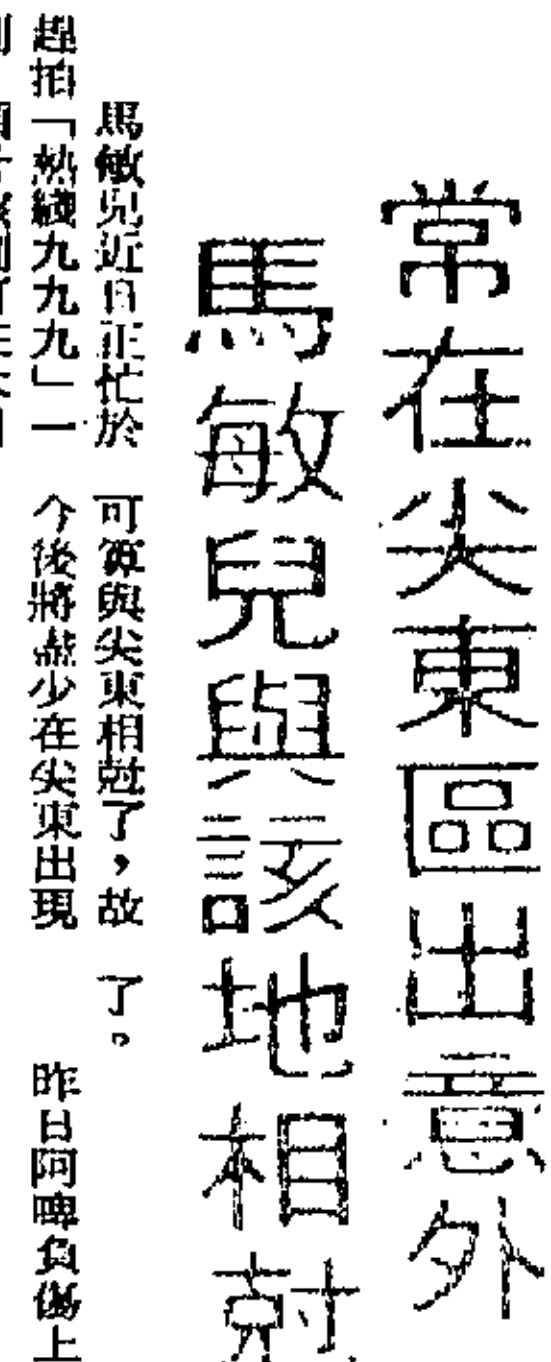 常在尖東區出意外
馬敏兒與該地相尅
馬敏兒近日正忙於
趕拍「熱綫九九九」一
可算與尖東相尅了，故
今後將盡少在尖東出現
了。
昨日阿啤負傷上